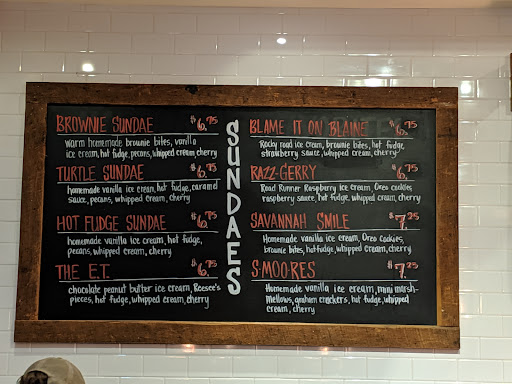 BROWNIE SUNDAE $6.75
warm homemade brownie bites, vanilla
ice cream, hot fudge, pecans, whipped cream, cherry
TURTLE SUNDAE $6.75
homemade vanilla ice cream, hot fudge, caramel
sauce, pecans, whipped cream, cherry
HOT FUDGE SUNDAE $6.75
homemade vanilla ice cream, hot fudge,
pecans, whipped cream, cherry
THE E.T. $6.75
chocolate peanut butter ice cream, Reeses's
pieces, hot fudge, whipped cream, cherry
SUNDAES
BLAME IT ON BLAINE $6.75
Rocky road ice cream, brownie bites, hot fudge,
strawberry sauce, whipped cream, cherry
RAZZ-GERRY $6.75
Road Runner Raspberry ice cream, Oreo cookies,
raspberry sauce, hot fudge, whipped cream, cherry
SAVANNAH SMILE $7.25
Homemade vanilla ice cream, Oreo Cookies,
brownie bites, hot fudge, whipped cream, cherry
S-MOO-RES $7.25
Homemade vanilla ice cream, mini marsh-
mellows, graham crackers, hot fudge, whipped
cream, cherry